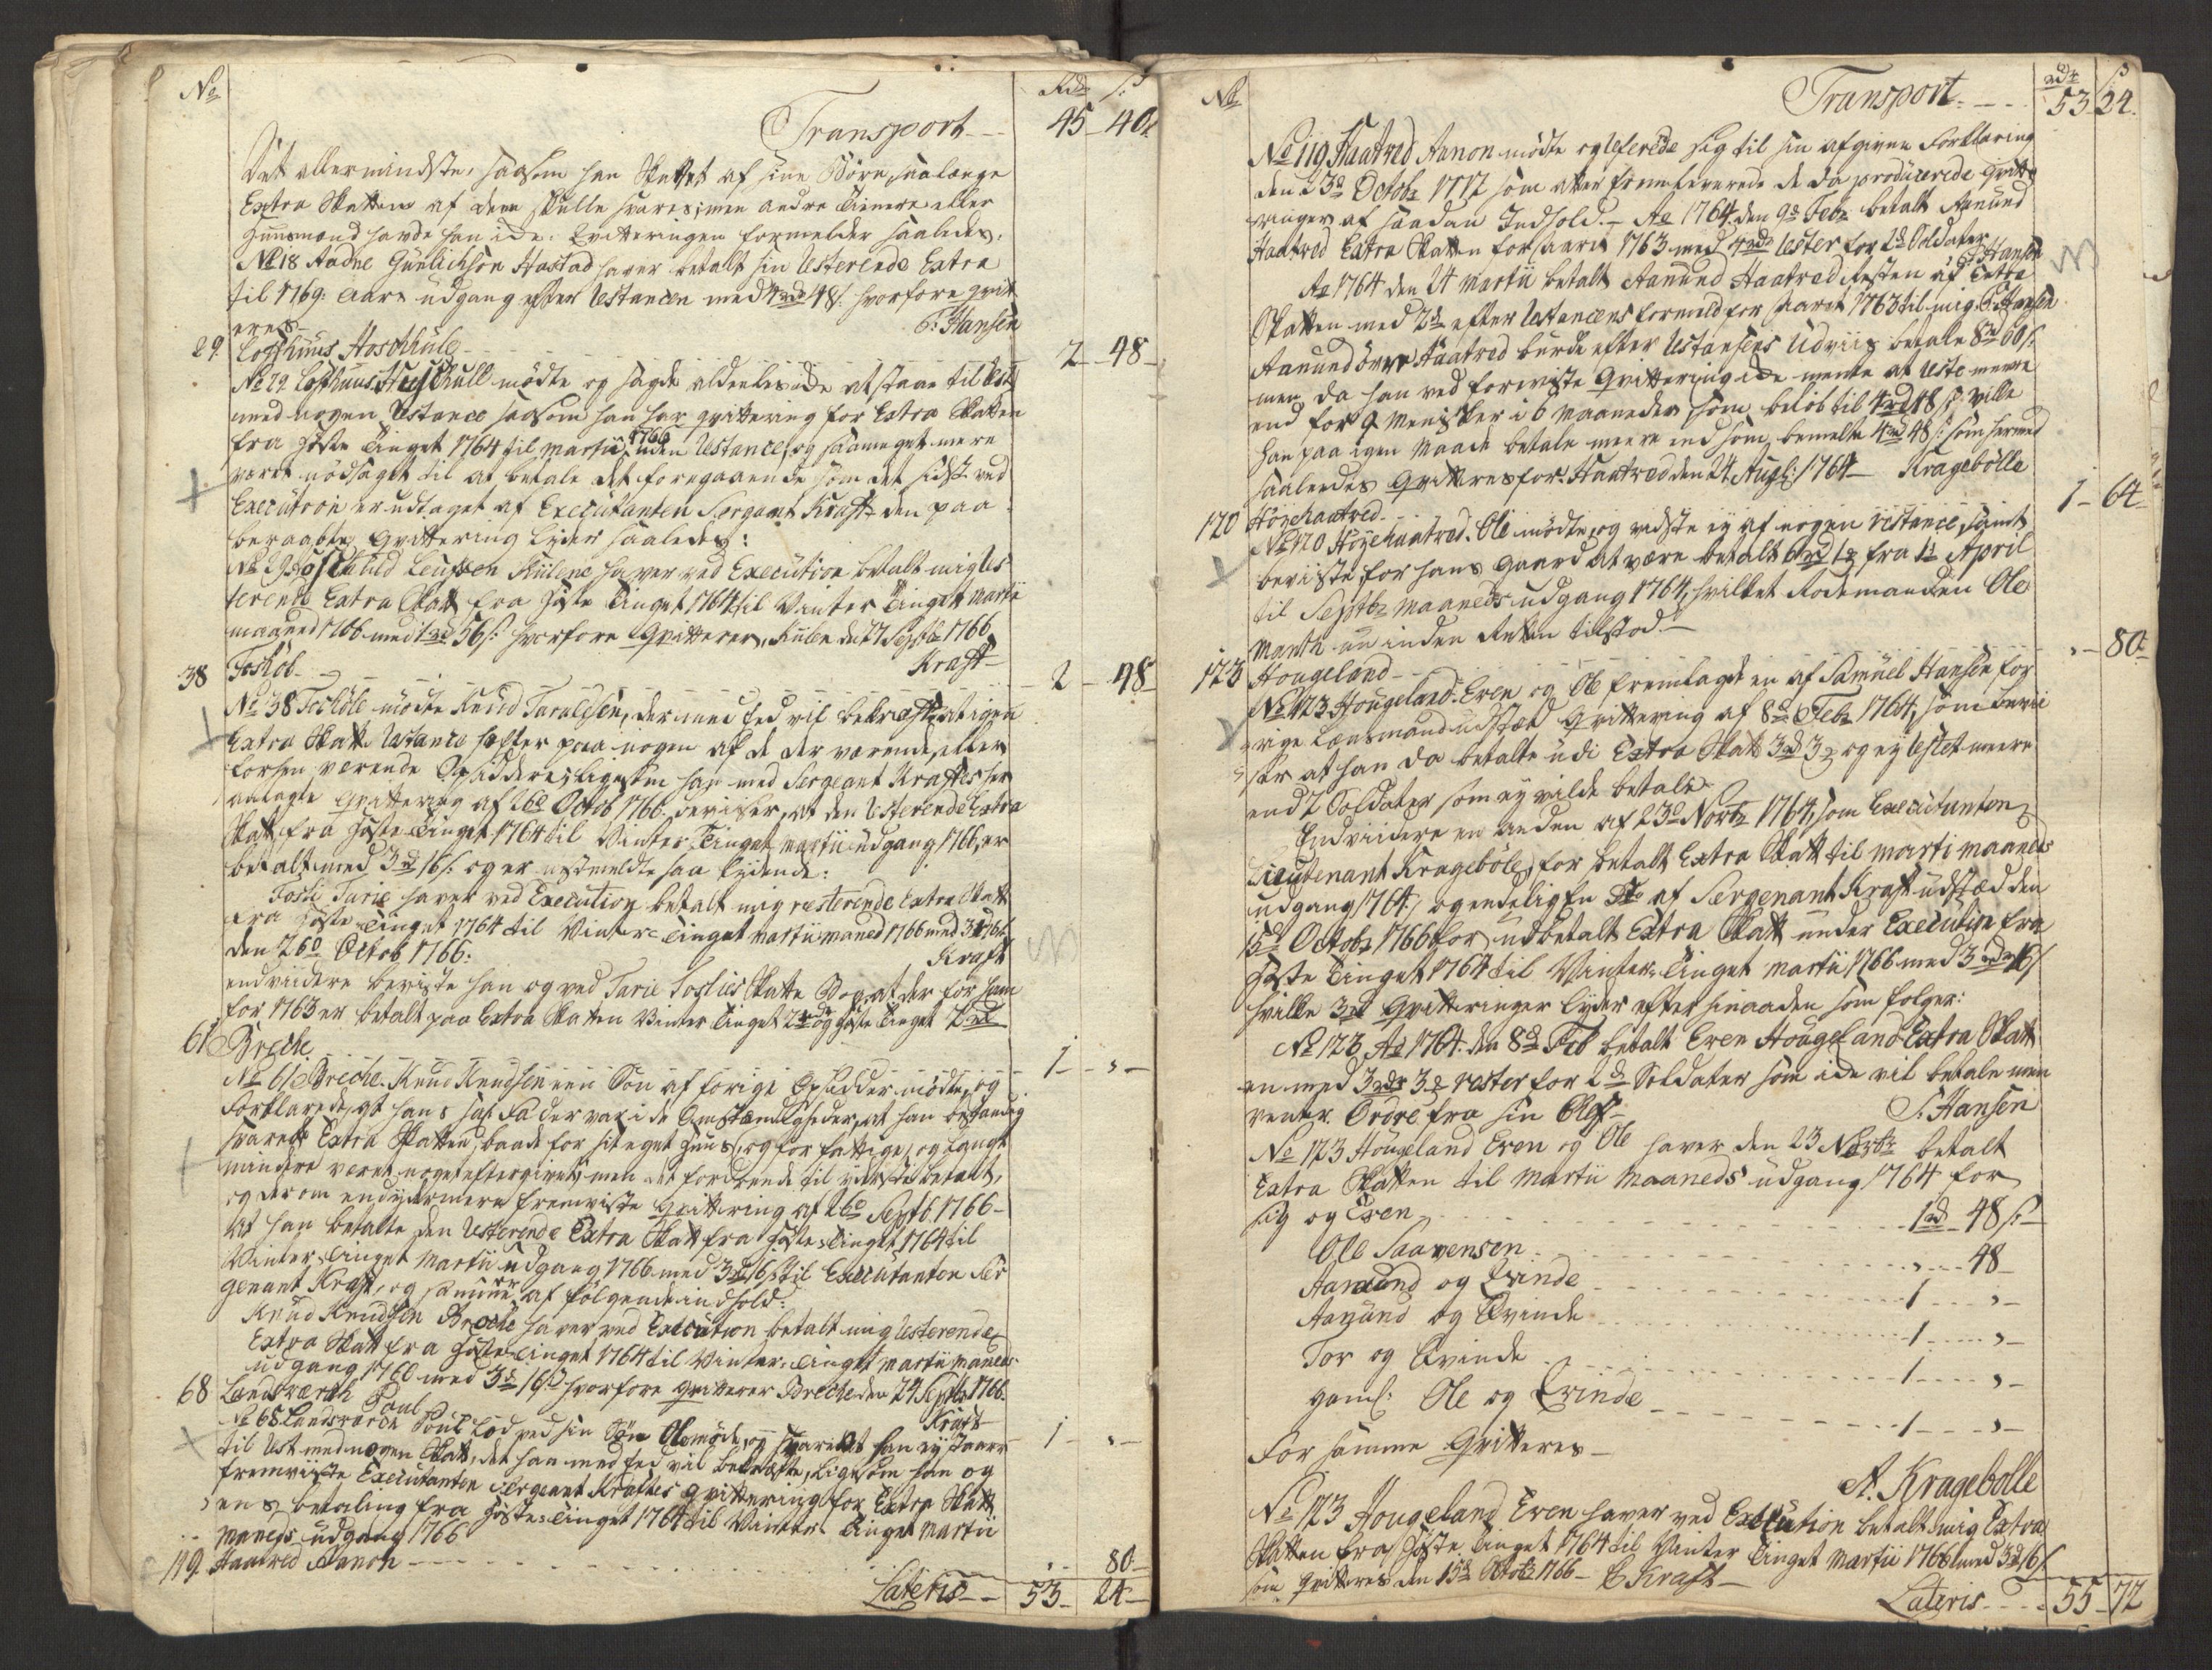 No
Rdr s:
Transport 45 40
Det allermindste, saasom han Skattet af sine Börn, saalænge
Extra Skatten af dem skulle svares; men andre Tienere eller
Huusmænd havde han icke. Qvitteringen formelder saaledes.
No 18 Aadne Gunlichsön Hastad haver betalt sin Resterende Extra
til 1769: Aars udgang efter Restancen med 4rdr 48s: hvorfore qvit-
eres S: Hansen
29. Losthuus Hoschule 2 48
No 29 Losthuus Hoschull mödte og sagde aldeeles icke at staae til Rest
med nogen Restance saasom han har qvittering for Extra Skatten
fra Höste Tinget 1764 til Martii 1766 uden Restance, og saameget mere
været nödsaget til at betale det foregaaende som det sidste ved
Execution er udtaget af Executanten Sergeant Kraft den paa-
beraabte qvittering lyder saaledes:
No 29 haver ved Execution betalt mig Res-
terende Extra Skatt fra Höste Tinget 1764 til Vinter Tinget Martii
maaned 1766 med 1rd 56s: hvorfore Qvitterer, den 27 Septbr 1766
Kraft
38 Foshöl 2 48
No 38 Foshöle mödte Knud Taraldsen, der med Eed vil bekræfte at igen
Extra Skatte Restance hæfter paa nogen af de der værende, eller
forhen værende Opsiddere; ligesom han med Sergeant Kraftes her
anlagte qvittering af 26d Octob 1766 beviser, at den Resterende Extra
Skatt fra Höste Tinget 1764 til Vinter Tinget Martii udgang 1766, er
betalt med 3rd 16s: og er saa lydende:
Tarie haver ved Execution betalt mig resterende Extra Skatt
fra Höste Tinget 1764 til Vinter Tinget Martii maaned 1766 med 3rd 16s
den 26d Octob 1766: Kraft
endviidere beviste han og ved Tarie Foshes Skatte Bog, at der for ham
for 1763 er betalt paa Extra Skatten Vinter Tinget 2rdr og Höste Tinget 2rd
61 Breche 1 "
No 61 Breche. Knud Knudsen een Sön af forige Opsidder mödte, og
forklarede, at hans Fader var i de Omstændigheder, at han bestandig
svarede Extra Skatten baade for sit eget Huus, og for fattige, og langt
mindre været noget eftergivet, men det fordrende til yderste betalt,
og derom endydermere fremviste qvittering af 26d Septb 1766
at han betalte den Resterende Extra Skatt fra Höste Tinget 1764 til
Vinter Tinget Martii udgang 1766 med 3rd 16s til Executanten Ser-
geant Kraft, og samme er af fölgende indhold:
Knud Knudsen Breche haver ved Execution betalt mig Resterende
Extra Skatt fra Höste Tinget 1764 til Vinter Tinget Martii maaneds
udgang 1766 med 3rd 16s: hvorfore qvitterer Breche den 27 Septb 1766.
Kraft
68 Landsværch Poul 1 "
No 68 Landsværch Poul Lod ved sin Sön Ole möde, og svaret at han ey staaer
til Rest med nogen Skatt, det han med Eed vil bekræfte, ligesom han og
fremviiste Executanten Sergeant Kraftes qvittering for Extra Skatt-
ens betaling fra Höste Tinget 1764 til Vinter Tinget Martii
maaneds udgang 1766
119 Haatved Aanon " 80
Lateris 53 24
No
rdr s
Transport 53 24
No 119 Haatved Aanon mödte og Refererede sig til sin afgivne Forklaring
den 23d Octobr 1772 som atter fremleverede de da producerede Qvitte-
ringer af saadan Indhold. Ao 1764 den 9d Febr betalt Aanund
Haatved Extra Skatten for aaret 1763 med 4rdr Rester for 2de Soldater
S: Hansen
Ao 1764 den 24 Martii betalt Aanund Haatved Resten af Extra
Skatten med efter Restancens formeld for aaret 1763 til mig S: Hansen
Aanund övre Haatved burde efter Restansens Udviis betale 8rd 60s.
men da han ved forviste Qvittering icke mente at Reste meere
end for 9 Mennisker i 6 Maaneder som belöb til 4rd 48s: ville
han paa igen Maade betale meere end som bemelte 4rd 48s: som hermed
saaledes Qvitteres for. Haatved den 24 Aug: 1764 Kragebölle
120 Höyehaatved 1 64
No 120 Höyehaatved. Ole mödte, og vidste ey af nogen restance, samt
beviiste for hans gaard at være betalt 6rd fra 1te April
til Septbr Maaneds udgang 1764, hvilket Rodemanden Ole
Mantk nu inden Retten tilstod.
123 Hougeland " 80
No 123 Hougeland. Even og Ole fremlagde en af Samuel Hansen for-
rige Lænsmand udstæd Qvittering af 8d Febr 1764, som bevii-
ser at han da betalte udi Extra Skatt 3rd og ey Restet meere
end 2 Soldater som ey vilde betale
Endviidere en anden af 23d Novbr 1764, som Executanten
Lieutenant Kragebölle, for betalt Extra Skatt til Marti maaneds
udgang 1764, og endelig En Do af Sergenant Kraft udstæd den
15d Octobr 1766 for udbetalt Extra Skatt under Execution fra
Höste Tinget 1764 til Vinter Tinget Martii 1766 med 3rdr 16s
hvilke 3de Qvitteringer lyder efter hinanden som fölger:
No 123 Ao 1764 den 8d Feb betalt Even Hougeland Extra Skatt-
en med 3rdr rester for 2d Soldater som icke vil betale men
venter Ordre fra sin S: Hansen
No 123 Hougeland Even og Ole haver den 23 Novbr betalt
Extra Skatten til Martii Maaneds udgang 1764 for
sig og Even 1rd 48s
Ole Saavensen " 48
Aanund og Qvinde 1 "
Aanund og Qvinde 1 "
Tor og Qvinde 1 "
gaml: Ole og Qvinde 1 "
For samme Qvitteres
A. Kragebölle
No 123 Hougeland Even haver ved Execution betalt mig Extra
Skatten fra Höste Tinget 1764 til Vinter Tinget Martii 1766 med 3rd 16s
som Qvitteres den 15d Octobr 1766 C Kraft
Lateris 55 72